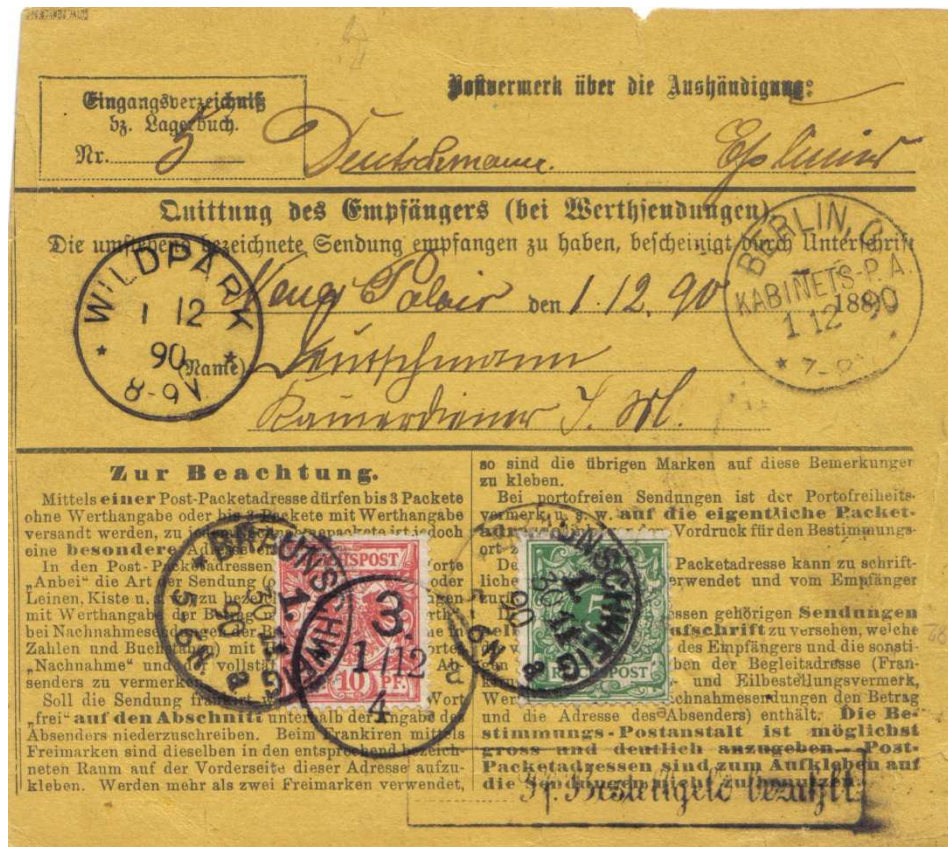 Postvermerk über die Aushändigung:
Eingangsverzeichniß
bz. Lagerbuch.
Nr. 5
Deutschmann.
Quittung des Empfängers (bei Werthsendungen)
Die umstehend bezeichnete Sendung empfangen zu haben, bescheinigt durch Unterschrift
den 1.12.90 1890
(Name)
WILDPARK
1 12
90
8-9V.
BERLIN, C.
KABINETS-P.A.
1 12 90
Zur Beachtung.
Mittels einer Post-Packetadresse dürfen bis 3 Packete
ohne Werthangabe oder bis 2 Packete mit Werthangabe
versandt werden, zu jedoch
eine besondere
In den Post-Packetadressen Worte
„Anbei“ die Art der Sendung oder
Leinen, Kiste u. zu
mit Werthangabe der Betrag
bei Nachnahmesendungen der in
Zahlen und Buchstaben) mit
„Nachnahme“ und der Ab-
senders zu vermerken
Soll die Sendung frankirt Wort
„frei“ auf den Abschnitt unterhalb der Angabe des
Absenders niederzuschreiben. Beim Frankiren mittels
Freimarken sind dieselben in den entsprechend bezeich-
neten Raum auf der Vorderseite dieser Adresse aufzu-
kleben. Werden mehr als zwei Freimarken verwendet,
so sind die übrigen Marken auf diese Bemerkungen
zu kleben.
Bei portofreien Sendungen ist der Portofreiheits-
vermerk u. s. w. auf die eigentliche Packet-
Vordruck für den Bestimmungs-
ort
Packetadresse kann zu schrift-
verwendet und vom Empfänger
gehörigen Sendungen
Aufschrift zu versehen, welche
des Empfängers und die sonsti-
gen der Begleitadresse (Fran-
und Eilbestellungsvermerk,
Nachnahmesendungen den Betrag
und die Adresse des Absenders) enthält. Die Be-
stimmungs-Postanstalt ist möglichst
gross und deutlich anzugeben. Post-
Packetadressen sind zum Aufkleben auf
die Sendungen nicht zu benutzen.
REICHSPOST
10 PF.
BRAUNSCHWEIG
3.
1/12
4
5
REICHSPOST
BRAUNSCHWEIG
Pf. Bestellgeld bezahlt